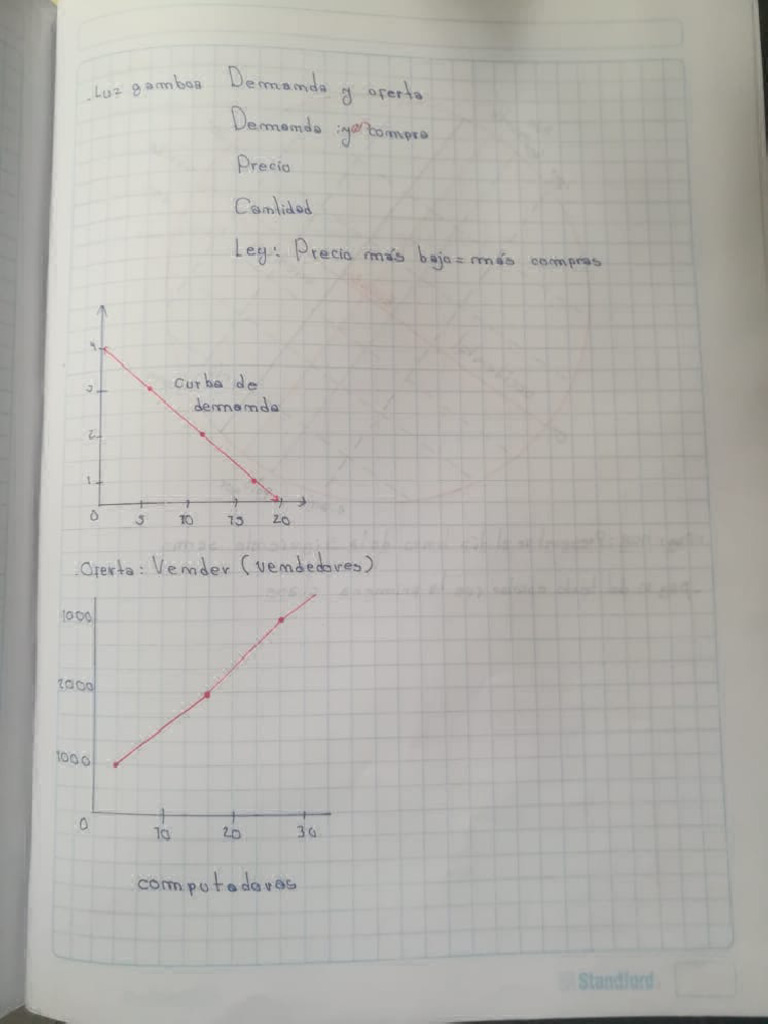 Luz gamboa Demanda y oferta
Demanda : compra
Precio
Cantidad
Ley: Precio más bajo = más compras
4
3
curba de
demanda
2
1
0 5 10 15 20
Oferta: Vender (vendedores)
1000
2000
1000
0 10 20 30
computadoras
Standford